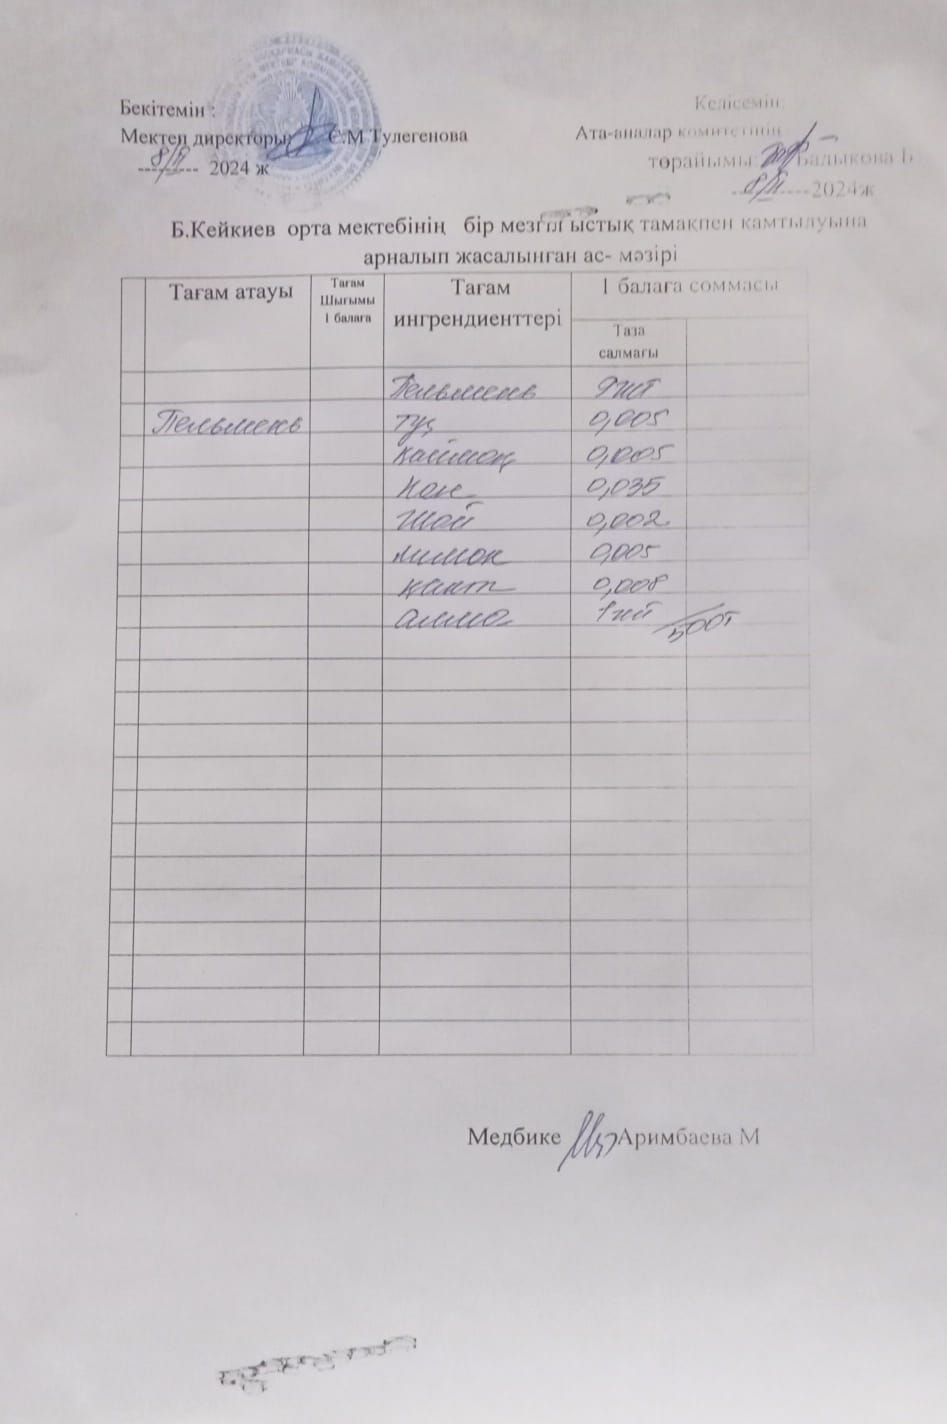 Бекітемін :
Мектеп директоры: С.М Тулегенова
8/ІІ 2024 ж
Келісемін:
Ата-аналар комитетінің
төрайымы: Балыкова Б
8/ІІ 2024ж
Б.Кейкиев орта мектебінің бір мезгіл ыстық тамақпен камтылуына
арналып жасалынган ас- мәзірі
Тағам атауы
Тағам
Шығымы
1 балаға
Тағам
ингрендиенттері
1 балаға соммасы
Таза
салмағы
Пельмень 9шт
Пельмень тұз 0,005
каймақ 0,005
нан 0,035
шай 0,002
лимон 0,005
қант 0,008
алма 1шт 500т
Медбике Аримбаева М